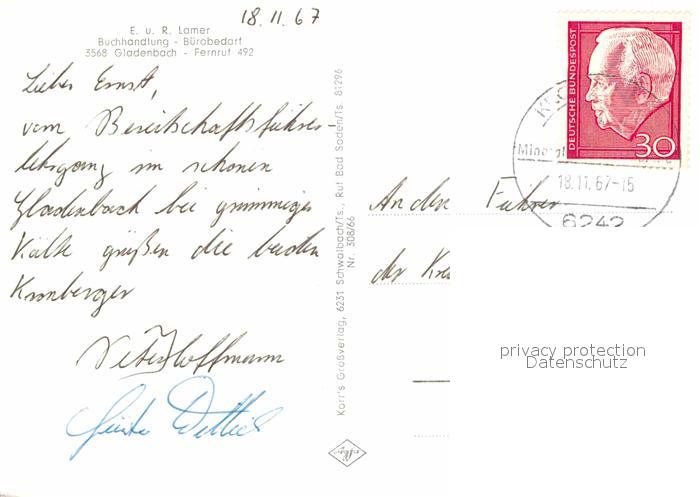 18.11.67
E. u. R. Lamer
Buchhandlung - Bürobedarf
3568 Gladenbach - Fernruf 492
Lieber Ernst,
vom Bereitschaftsführer-
lehrgang im schönen
Gladenbach bei grimmiger
Kälte grüßen die beiden
Kronberger
Dieter Hoffmann
Günter Dettlich
Korr's Großverlag, 6231 Schwalbach/Ts., Ruf Bad Soden/Ts. 81296
Nr. 308/66
DEUTSCHE BUNDESPOST
30
18.11.67-15
6242
An den Führer
der
privacy protection
Datenschutz